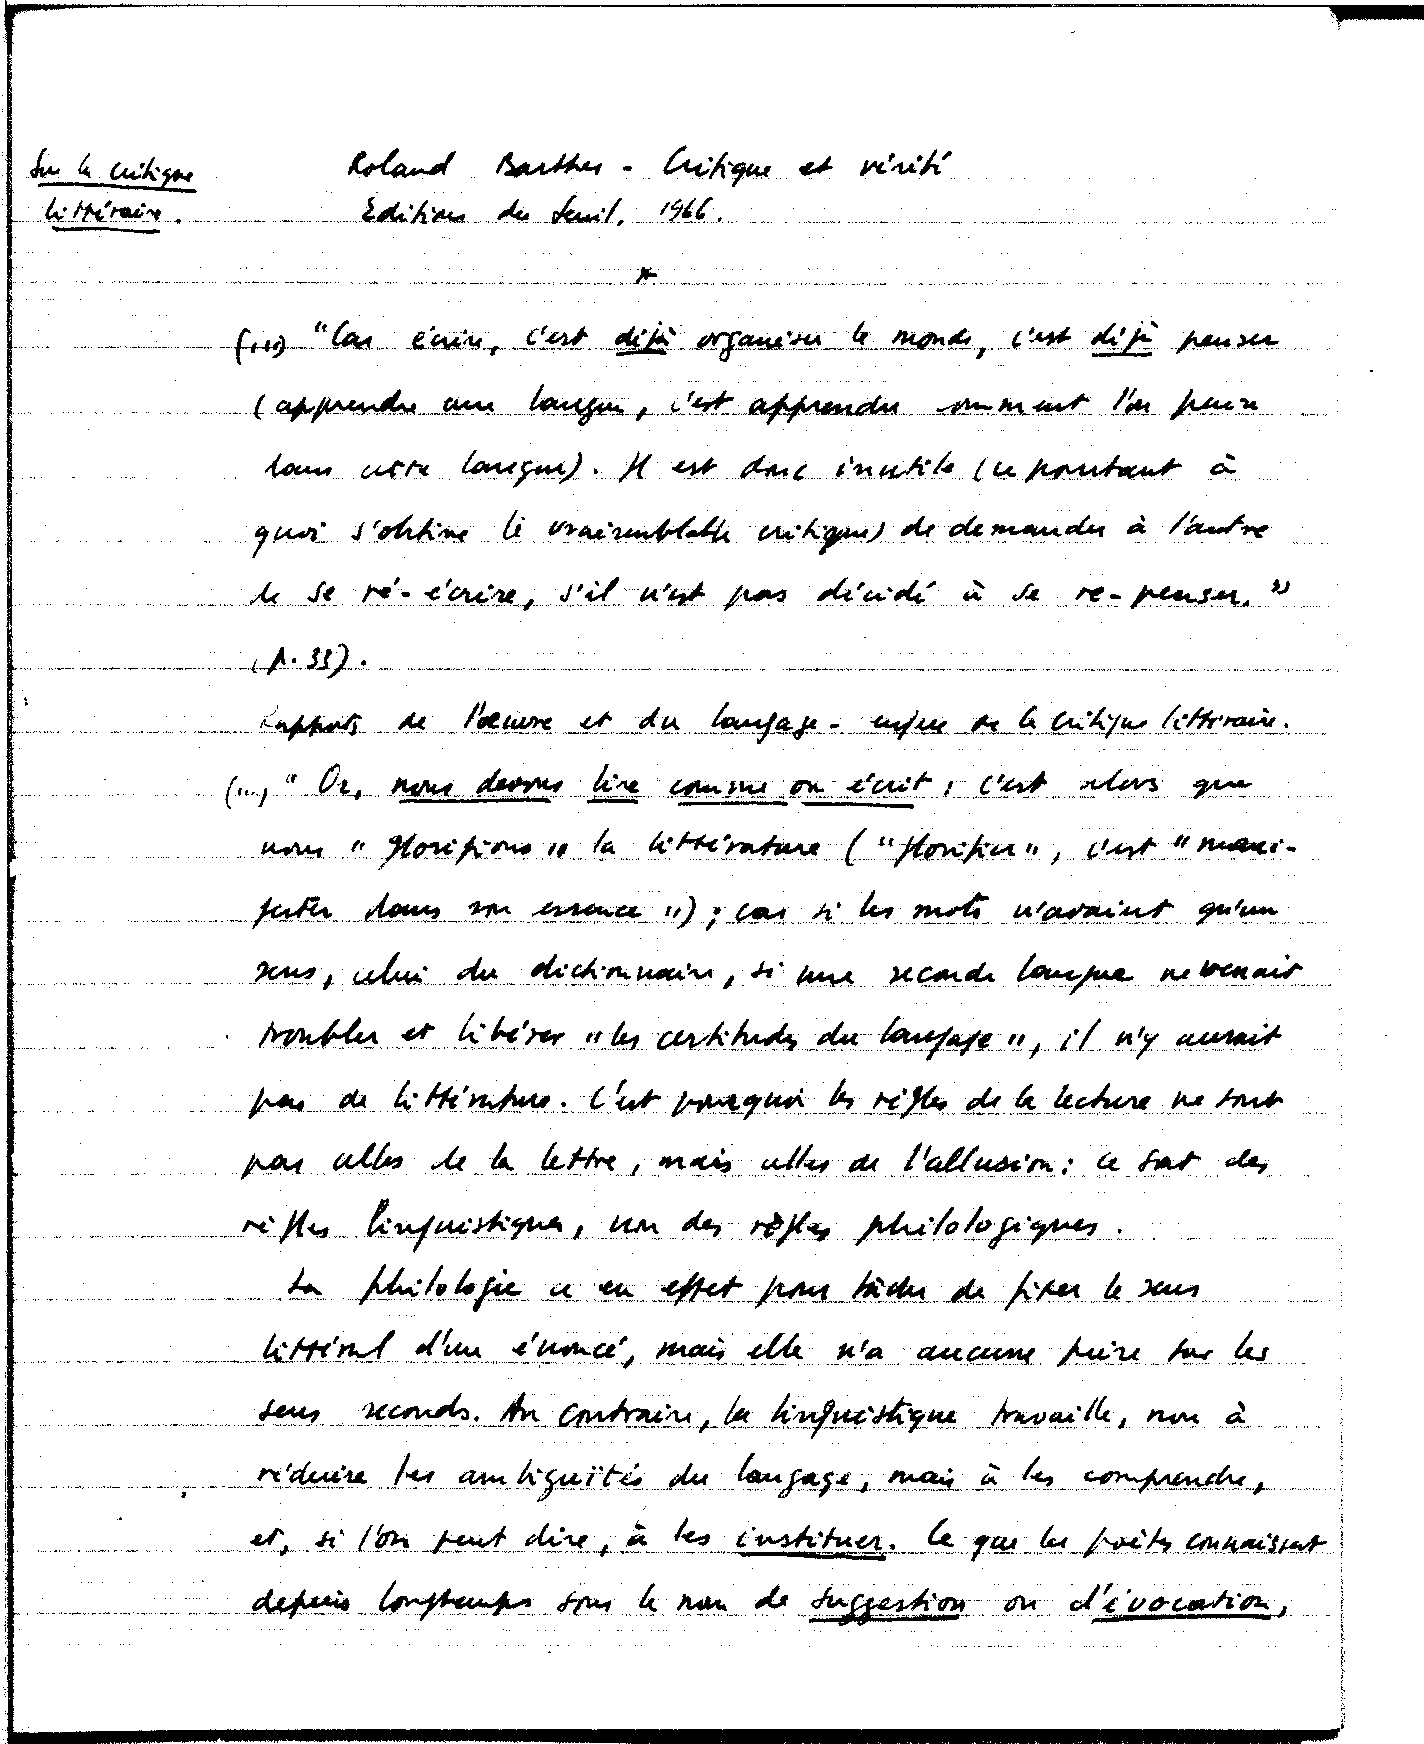 Sur la critique
littéraire.
Roland Barthes - Critique et vérité
Editions du Seuil, 1966.
*
(...) "Car écrire, c'est déjà organiser le monde, c'est déjà penser
(apprendre une langue, c'est apprendre comment l'on pense
dans cette langue). Il est donc inutile (ce pourtant à
quoi s'obstine le vraisemblable critique) de demander à l'autre
de se ré-écrire, s'il n'est pas décidé à se re-penser."
(p. 33).
Rapports de l'œuvre et du langage - enjeu de la critique littéraire.
(...) "Or, nous devons lire comme on écrit : c'est alors que
nous "glorifions" la littérature ("glorifier", c'est "mani-
fester dans son essence") ; car si les mots n'avaient qu'un
sens, celui du dictionnaire, si une seconde langue ne venait
troubler et libérer "les certitudes du langage", il n'y aurait
pas de littérature. C'est pourquoi les règles de la lecture ne sont
pas celles de la lettre, mais celles de l'allusion : ce sont des
règles linguistiques, non des règles philologiques.
La philologie a en effet pour tâche de fixer le sens
littéral d'un énoncé, mais elle n'a aucune prise sur les
sens seconds. Au contraire, la linguistique travaille, non à
réduire les ambiguïtés du langage, mais à les comprendre,
et, si l'on peut dire, à les instituer. Ce que les poètes connaissent
depuis longtemps sous le nom de suggestion ou d'évocation,